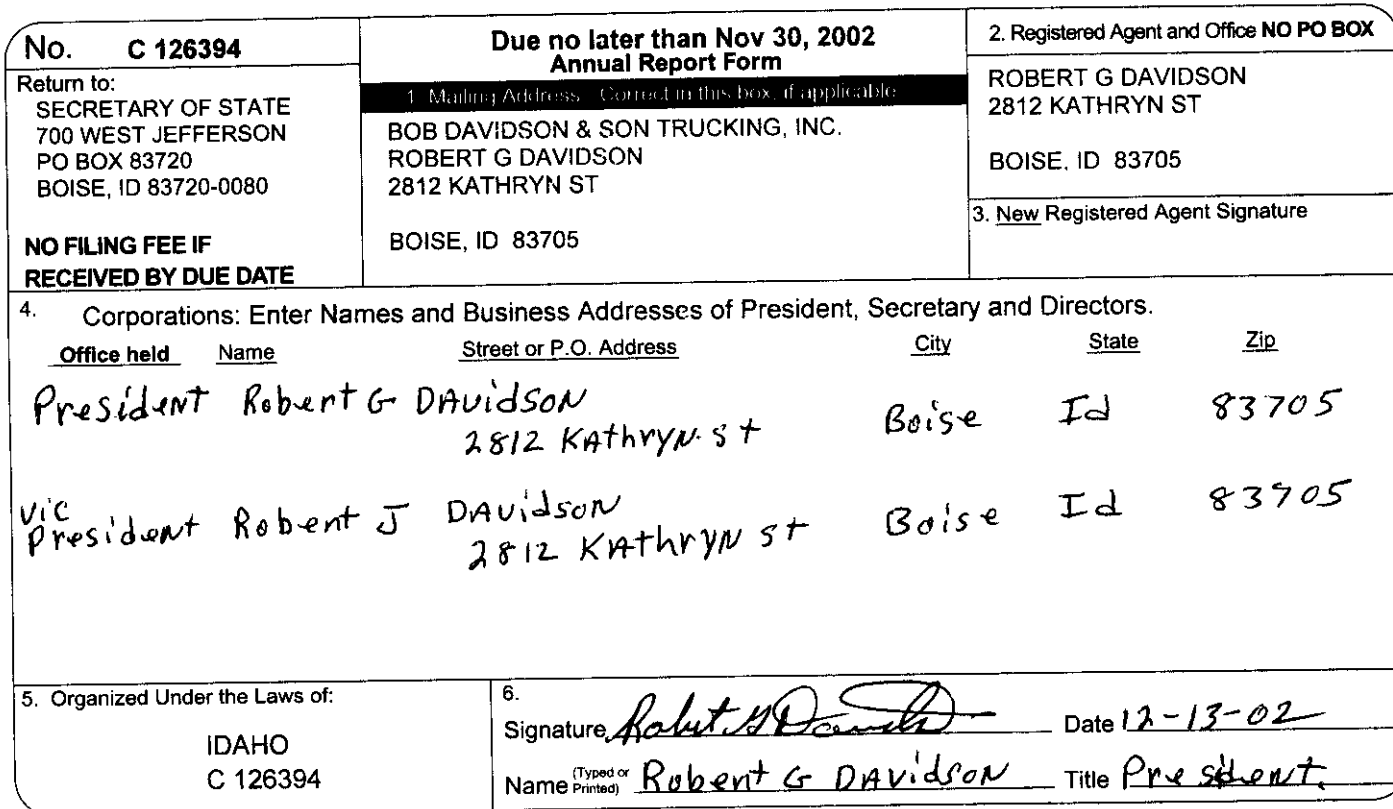 No. C 126394
Return to:
SECRETARY OF STATE
700 WEST JEFFERSON
PO BOX 83720
BOISE, ID 83720-0080
NO FILING FEE IF
RECEIVED BY DUE DATE
Due no later than Nov 30, 2002
Annual Report Form
1. Mailing Address - Correct in this box, if applicable
BOB DAVIDSON & SON TRUCKING, INC.
ROBERT G DAVIDSON
2812 KATHRYN ST
BOISE, ID 83705
2. Registered Agent and Office NO PO BOX
ROBERT G DAVIDSON
2812 KATHRYN ST
BOISE, ID 83705
3. New Registered Agent Signature
4. Corporations: Enter Names and Business Addresses of President, Secretary and Directors.
Office held Name Street or P.O. Address City State Zip
President Robert G DAVidSON
2812 KAthryN St Boise Id 83705
Vic
President Robert J DAVidSON
2812 KAthryN St Boise Id 83705
5. Organized Under the Laws of:
IDAHO
C 126394
6.
Signature Robert G Davidson Date 12-13-02
Name (Typed or Printed) Robert G DAVidSON Title President.